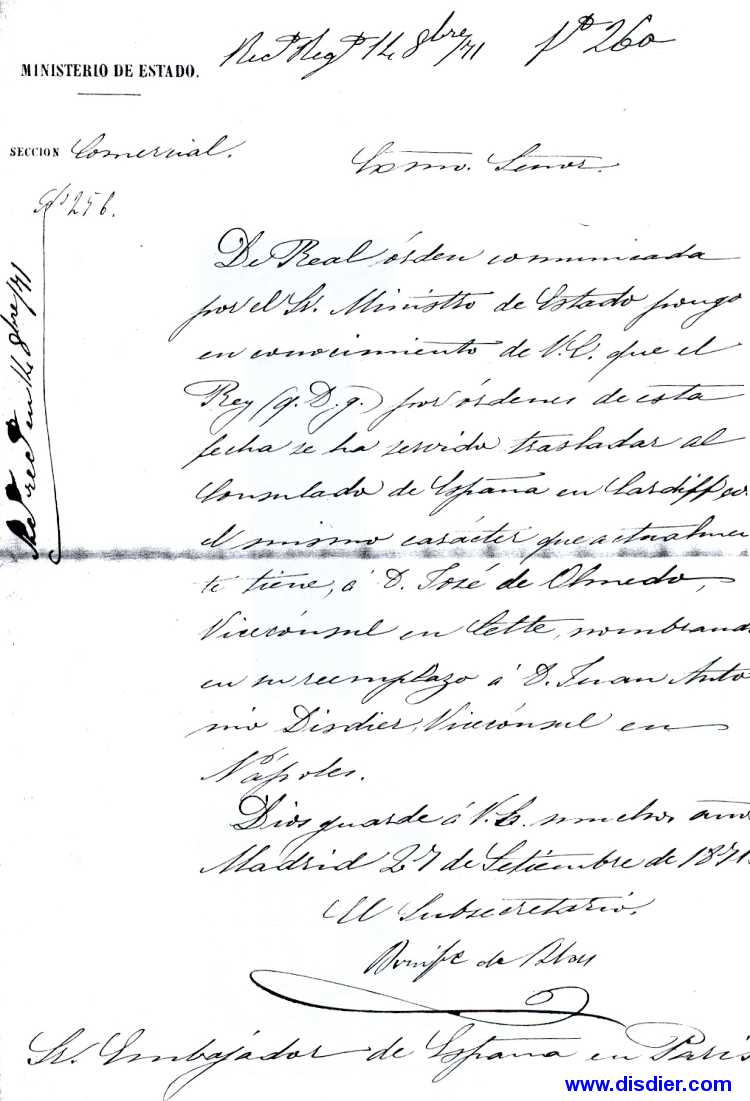 Rec. Reg. 14 8bre/71 fº 260
MINISTERIO DE ESTADO.
SECCION Comercial.
Nº 256.
Excmo. Señor.
De Real órden comunicada
por el Sr. Ministro de Estado pongo
en conocimiento de V.E. que el
Rey (q. D. g.) por órdenes de esta
fecha se ha servido trasladar al
Consulado de España en Cardiff con
el mismo carácter que actualmen
te tiene, á D. José de Olmedo,
Vicecónsul en Cette, nombrando
en su reemplazo á D. Juan Anto
nio Disdier, Vicecónsul en
Nápoles.
Dios guarde á V.E. muchos años
Madrid 27 de Setiembre de 1871.
El Subsecretario,
de Blas
Sr. Embajador de España en Paris
rec. en 14 8bre/71
www.disdier.com